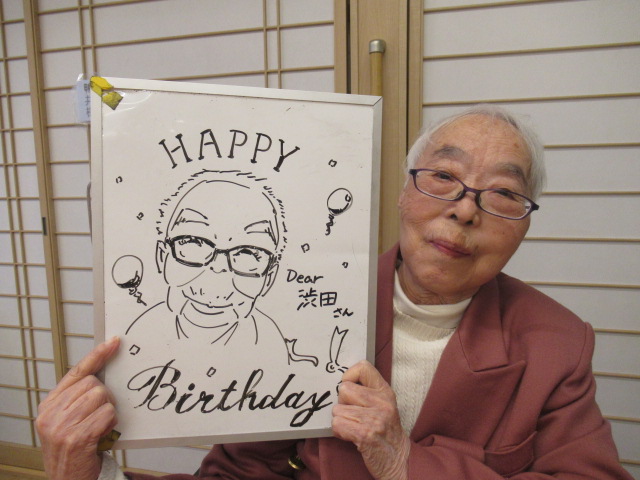 HAPPY
Dear
渋田
さん
Birthday